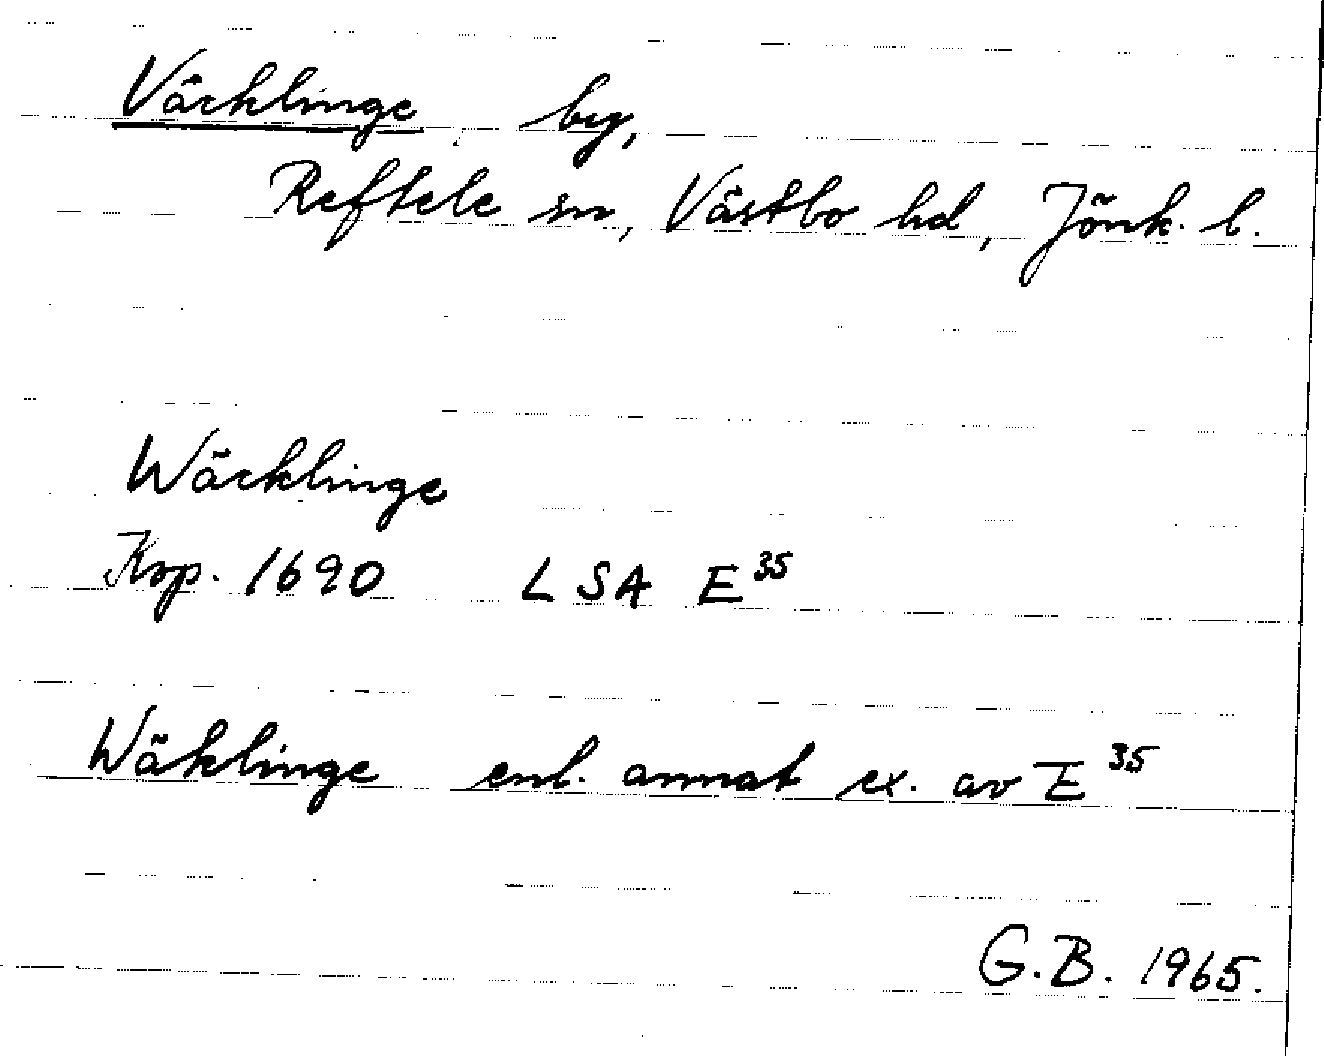 Väcklinge by,
Reftele sn, Västbo hd, Jönk. l.
Wäcklinge
Kop. 1690 LSA E³⁵
Wäklinge enl. annat ex. av E³⁵
G.B. 1965.